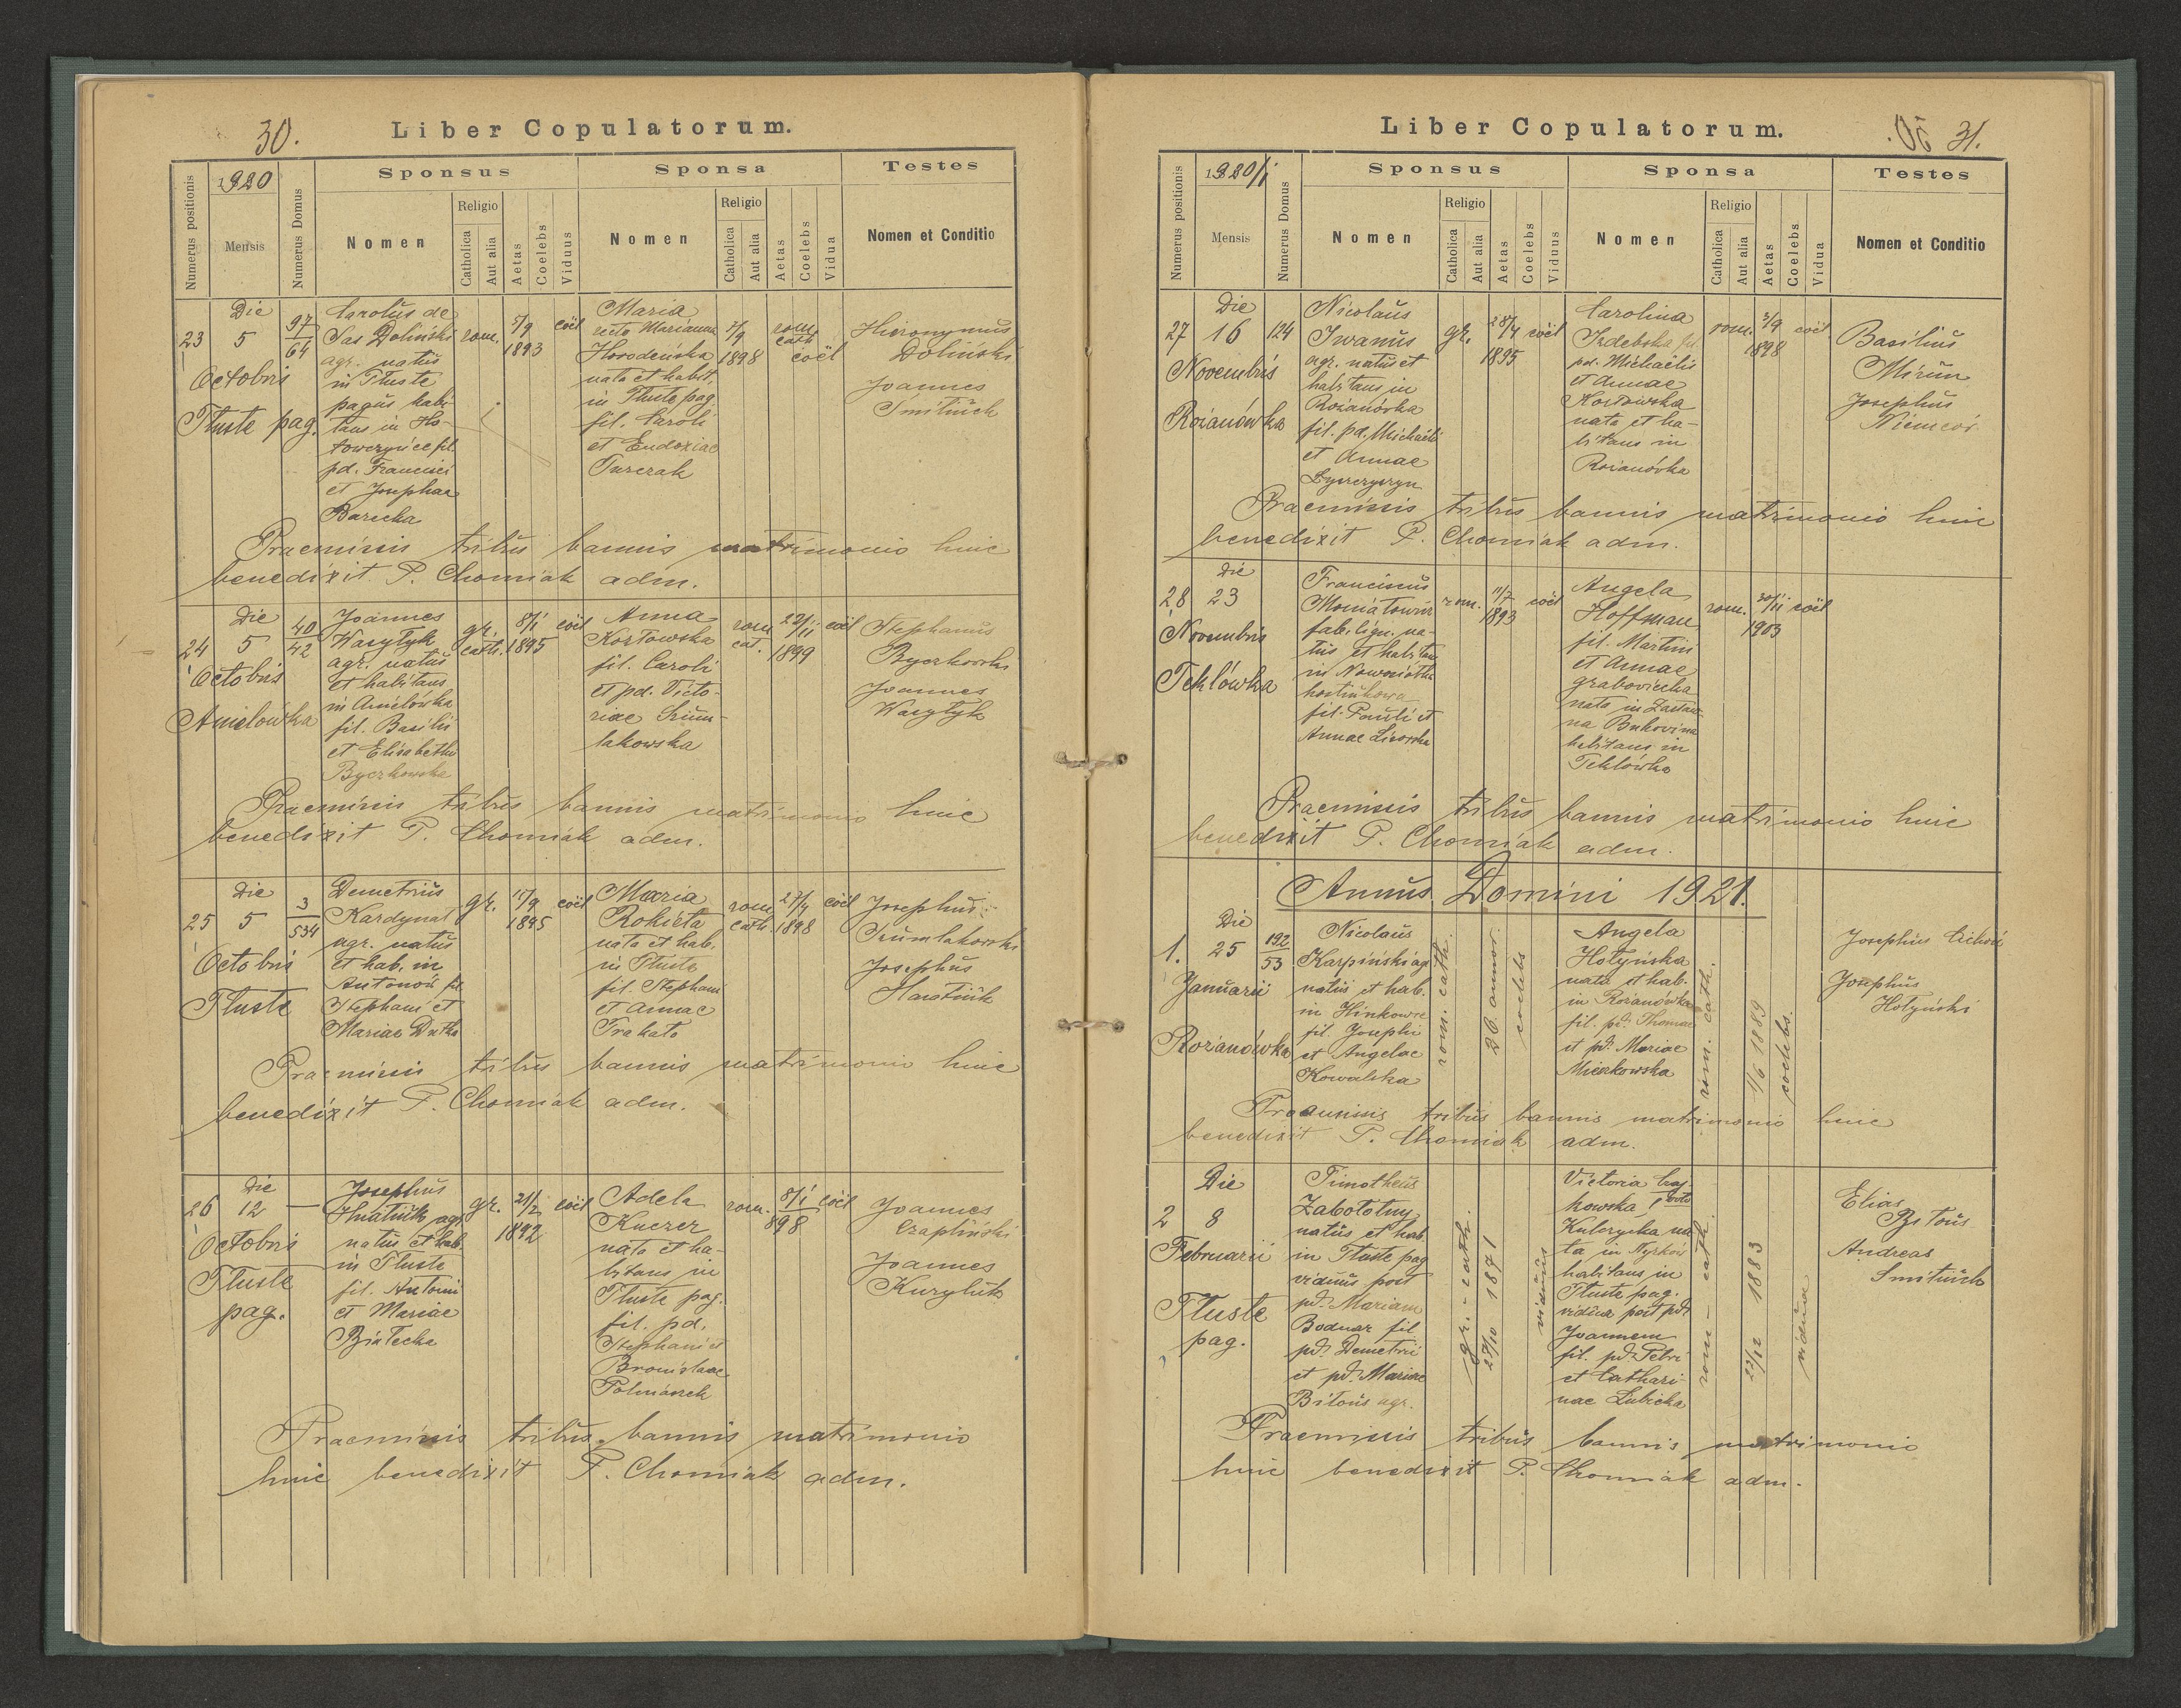 30.
Liber Copulatorum.
Numerus positionis
1920
Mensis
Numerus Domus
Sponsus
Nomen
Religio
Catholica
Aut alia
Aetas
Coelebs
Viduus
Sponsa
Nomen
Religio
Catholica
Aut alia
Aetas
Coelebs
Vidua
Testes
Nomen et Conditio
23
Die
5
Octobris
Tłuste pag.
97
64
Carolus de
Sas Doliński
agr. natus
in Tłuste
pagus habi-
tans in Ho-
łowczyńce fil.
pd. Francisci
et Josephae
Barecka
rom.
5/9
1893
coel
Maria
recte Marianna
Horodeńska
nata et habit.
in Tłuste pag.
fil. Caroli
et Eudoxiae
Turczak
7/9
1898
rom.
cath
coel
Hieronymus
Doliński
Joannes
Smituch
Praemissis tribus bannis matrimonio huic
benedixit P. Chomiak adm.
24
Die
5
Octobris
Anielówka
40
42
Joannes
Wasyłyk
agr. natus
et habitans
in Anielówka
fil. Basilii
et Elisabetha
Byczkowska
gr.
cath.
8/1
1895
coel
Anna
Kozłowska
fil. Caroli
et pd. Victo-
riae Szum-
lakowska
rom
cat.
22/11
1899
coel
Stephanus
Byczkowski
Joannes
Wasyłyk
Praemissis tribus bannis matrimonio huic
benedixit P. Chomiak adm.
25
Die
5
Octobris
Tłuste
3
534
Demetrius
Kardynał
agr. natus
et hab. in
Antonów fil.
Stephani et
Mariae Dutka
gr.
15/9
1895
coel
Maria
Rokieta
nata et hab.
in Tłuste
fil. Stephani
et Annae
Trakało
rom
cath.
27/4
1898
coel
Josephus
Szumlakowski
Josephus
Hanatiuk
Praemissis tribus bannis matrimonio huic
benedixit P. Chomiak adm.
26
Die
12
Octobris
Tłuste
pag.
—
Josephus
Hnatiuk agr.
natus et hab.
in Tłuste
fil. Antonii
et Mariae
Białecka
gr.
21/2
1892
coel
Adela
Kuczer
nata et ha-
bitans in
Tłuste pag.
fil. pd.
Stephani et
Bronislaae
Polniaszek
rom.
8/1
898
coel
Joannes
Czapliński
Joannes
Kuryluk
Praemissis tribus bannis matrimonio
huic benedixit P. Chomiak adm.
31.
Liber Copulatorum.
Numerus positionis
1920/1
Mensis
Numerus Domus
Sponsus
Nomen
Religio
Catholica
Aut alia
Aetas
Coelebs
Viduus
Sponsa
Nomen
Religio
Catholica
Aut alia
Aetas
Coelebs
Vidua
Testes
Nomen et Conditio
27
Die
16
Novembris
Rożanówka
124
Nicolaus
Iwanus
agr. natus et
habitans in
Rożanówka
fil. pd. Michaeli
et Annae
gr.
28/4
1895
coel
Carolina
Izdebska fil.
pd. Michaelis
et Annae
Kozłowska
nata et ha-
bitans in
Rożanówka
rom.
3/9
1898
coel
Basilius
Mirun
Josephus
Niemców
Praemissis tribus bannis matrimonio huic
benedixit P. Chomiak adm.
28
Die
23
Novembris
Teklówka
Franciscus
Moniatowicz
fab. lign. na-
tus et habitans
in Nowosiółka
kostiukowa
fil. Pauli et
Annae Lisowska
rom.
11/7
1893
coel
Angela
Hoffman
fil. Martini
et Annae
grabowiecka
nata in Zastaw-
na Bukovina
habitans in
Teklówka
rom.
30/11
1903
coel
Praemissis tribus bannis matrimonio huic
benedixit P. Chomiak adm.
Annus Domini 1921.
1.
Die
25
Januarii
Rożanówka
192
53
Nicolaus
Karpiński ag
natus et hab.
in Hinkowce
fil. Josephi
et Angelae
Kowalska
rom. cath.
26 annor.
coelebs
Angela
Hołyńska
nata et hab.
in Rożanówka
fil. pd. Thomae
et pd. Mariae
Mieczkowska
rom. cath.
1/6 1889
coelebs.
Josephus Cichocki
Josephus
Hołyński
Praemissis tribus bannis matrimonio huic
benedixit P. Chomiak adm.
2
Die
8
Februarii
Tłuste
pag.
Timotheus
Zabołotny
natus et hab.
in Tłuste pag
viduus post
pd. Mariam
Bodnar fil
pd. Demetrii
et pd. Mariae
Bilous agr.
gr. - cath.
27/10 1871
viduus
Victoria Czaj-
kowska 1 voto
Kulczycka na
ta in Nyrków
habitans in
Tłuste pag.
vidua post pd.
Joannem
fil. pd. Petri
et Cathari-
nae Lubicka
rom - cath.
23/12 1883
vidua
Elias
Biłous
Andreas
Smituch
Praemissis tribus bannis matrimonio
huic benedixit P. Chomiak adm.